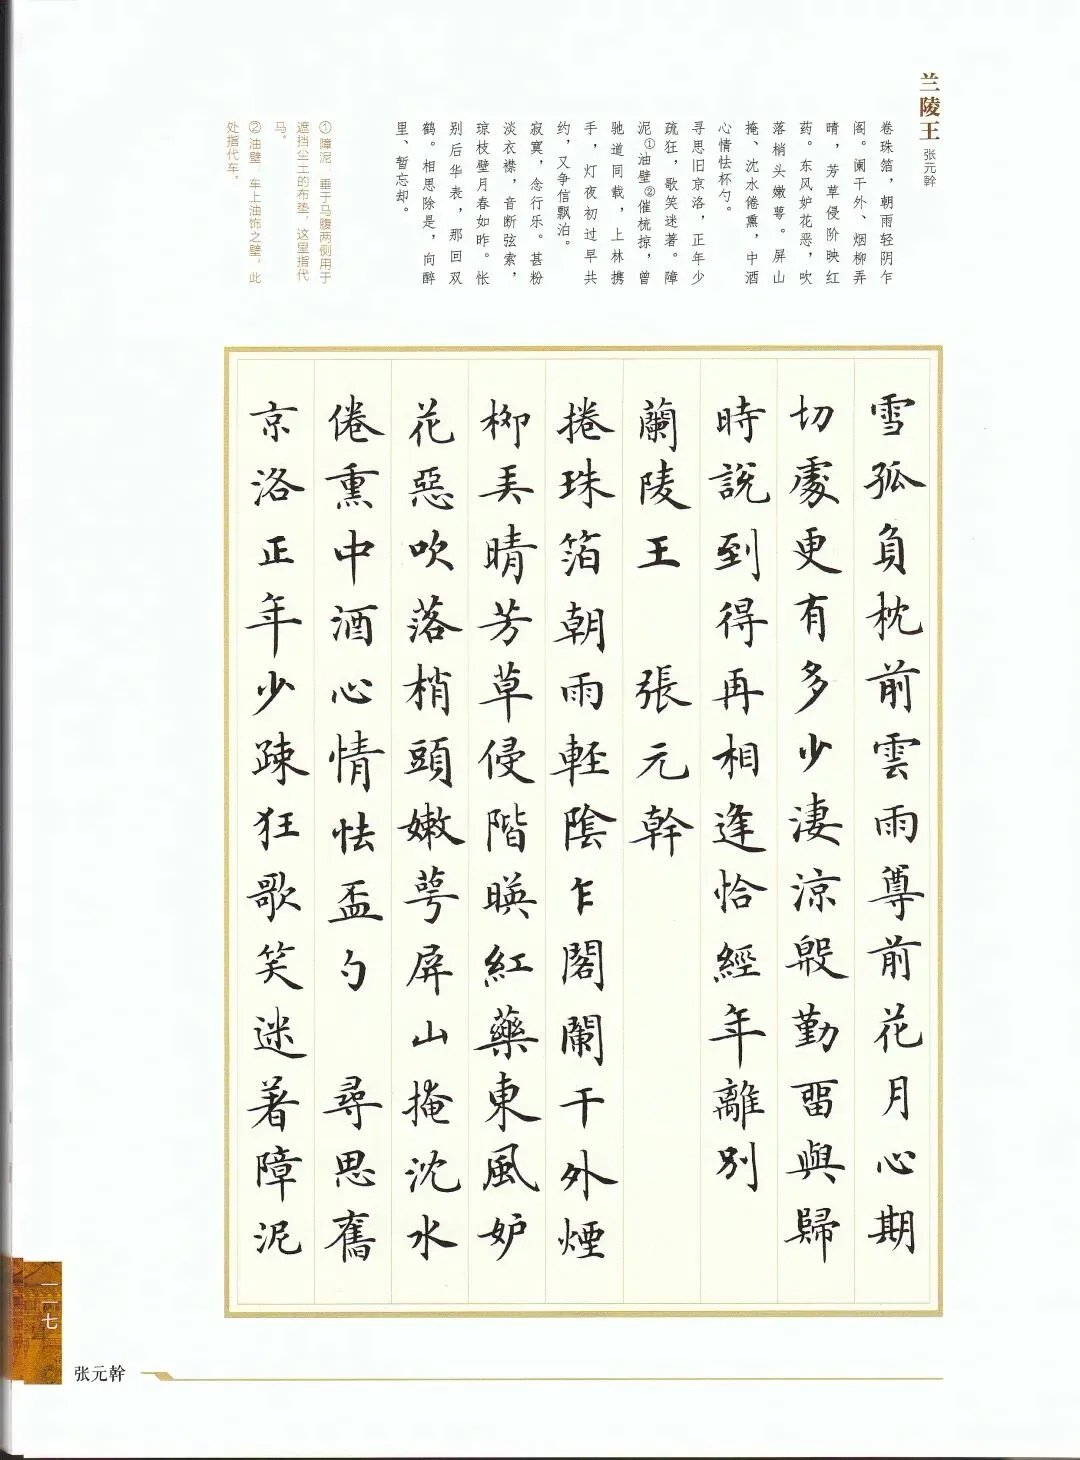 兰陵王
张元幹
卷珠箔，朝雨轻阴乍
阁。阑干外、烟柳弄
晴，芳草侵阶映红
药。东风妒花恶，吹
落梢头嫩萼。屏山
掩、沈水倦熏，中酒
心情怯杯勺。
寻思旧京洛，正年少
疏狂，歌笑迷著。障
泥①油壁②催梳掠，曾
驰道同载，上林携
手，灯夜初过早共
约，又争信飘泊。
寂寞，念行乐。甚粉
淡衣襟，音断弦索，
琼枝壁月春如昨。怅
别后华表，那回双
鹤。相思除是，向醉
里、暂忘却。
①障泥：垂于马腹两侧用于
遮挡尘土的布垫，这里指代
马。
②油壁：车上油饰之壁，此
处指代车。
雪孤負枕前雲雨尊前花月心期
切處更有多少淒涼殷勤留與歸
時說到得再相逢恰經年離別
蘭陵王 張元幹
捲珠箔朝雨軽陰乍閣闌干外煙
柳弄晴芳草侵階暎紅藥東風妒
花惡吹落梢頭嫩萼屏山掩沈水
倦熏中酒心情怯盃勺 尋思舊
京洛正年少疎狂歌笑迷著障泥
一一七
张元幹